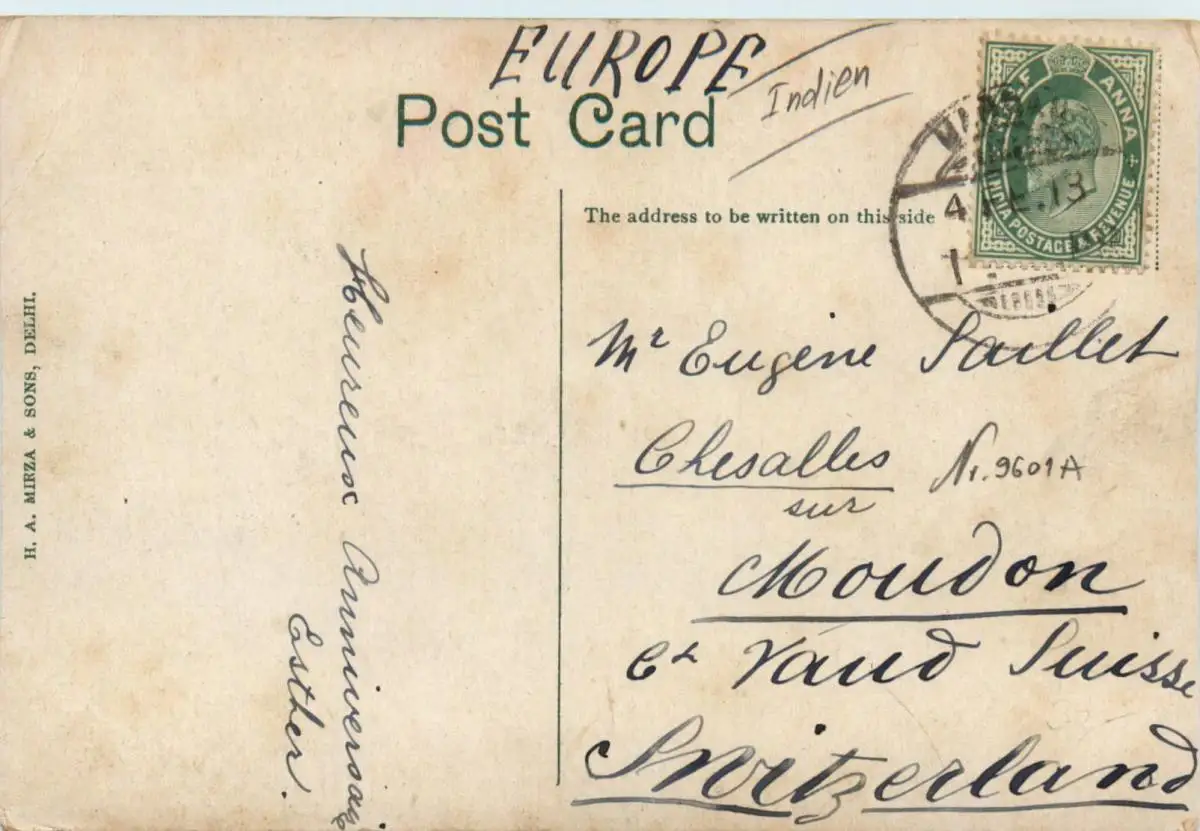 EUROPE
Indien
Post Card
HALF ANNA
INDIA POSTAGE & REVENUE
The address to be written on this side
Mr Eugène Saillet
Chesalles Nr. 9601A
sur
Moudon
Ct Vaud Suisse
Switzerland
Heureux Anniversaire
Esther.
H. A. MIRZA & SONS, DELHI.